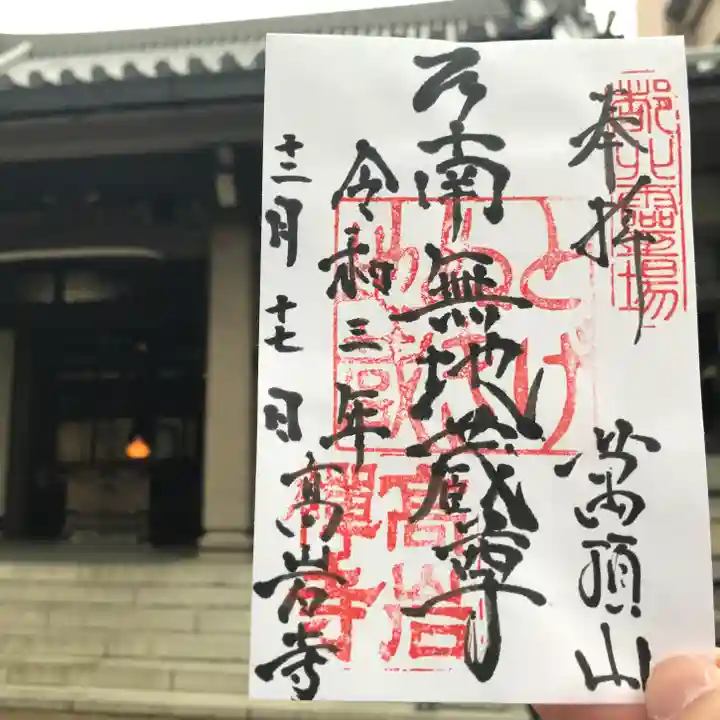 奉拝
萬頂山
南無地蔵尊
令和三年
十二月十七日
高岩寺
とげぬき地蔵
高岩禅寺